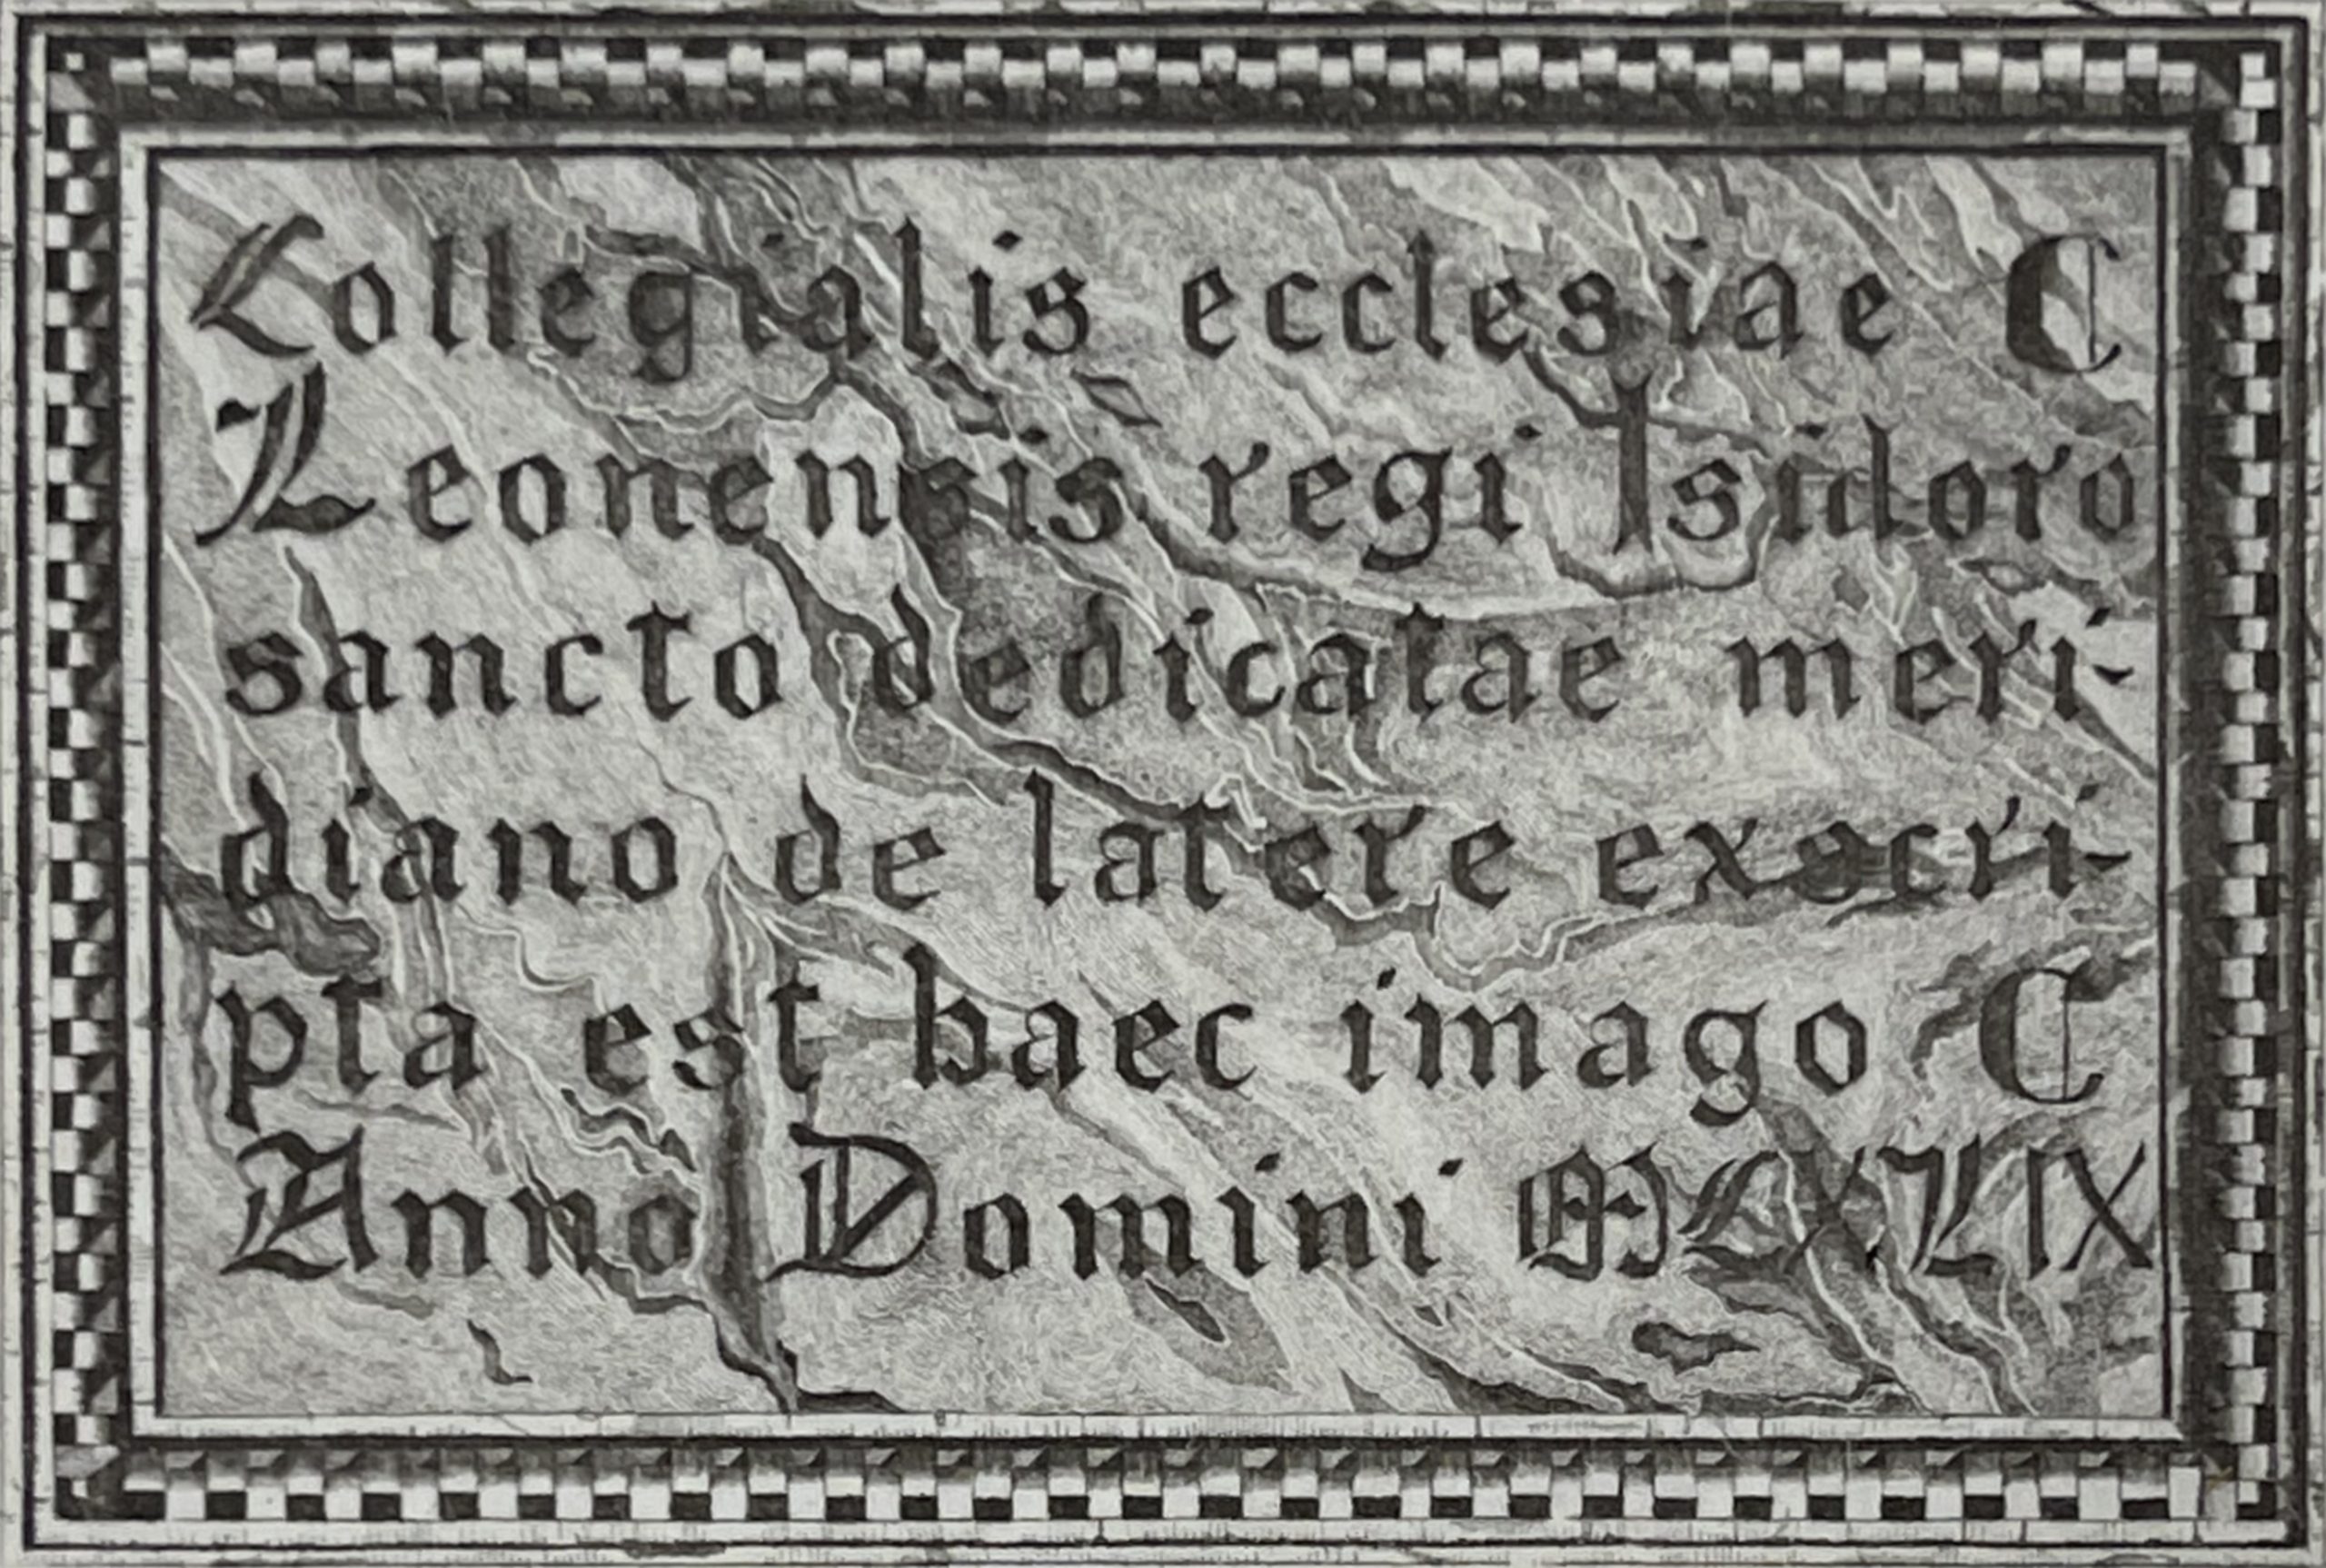 Collegialis ecclesiae C
Leonensis regi Isidoro
sancto dedicatae meri-
diano de latere exscri-
pta est haec imago C
Anno Domini MCXLIX